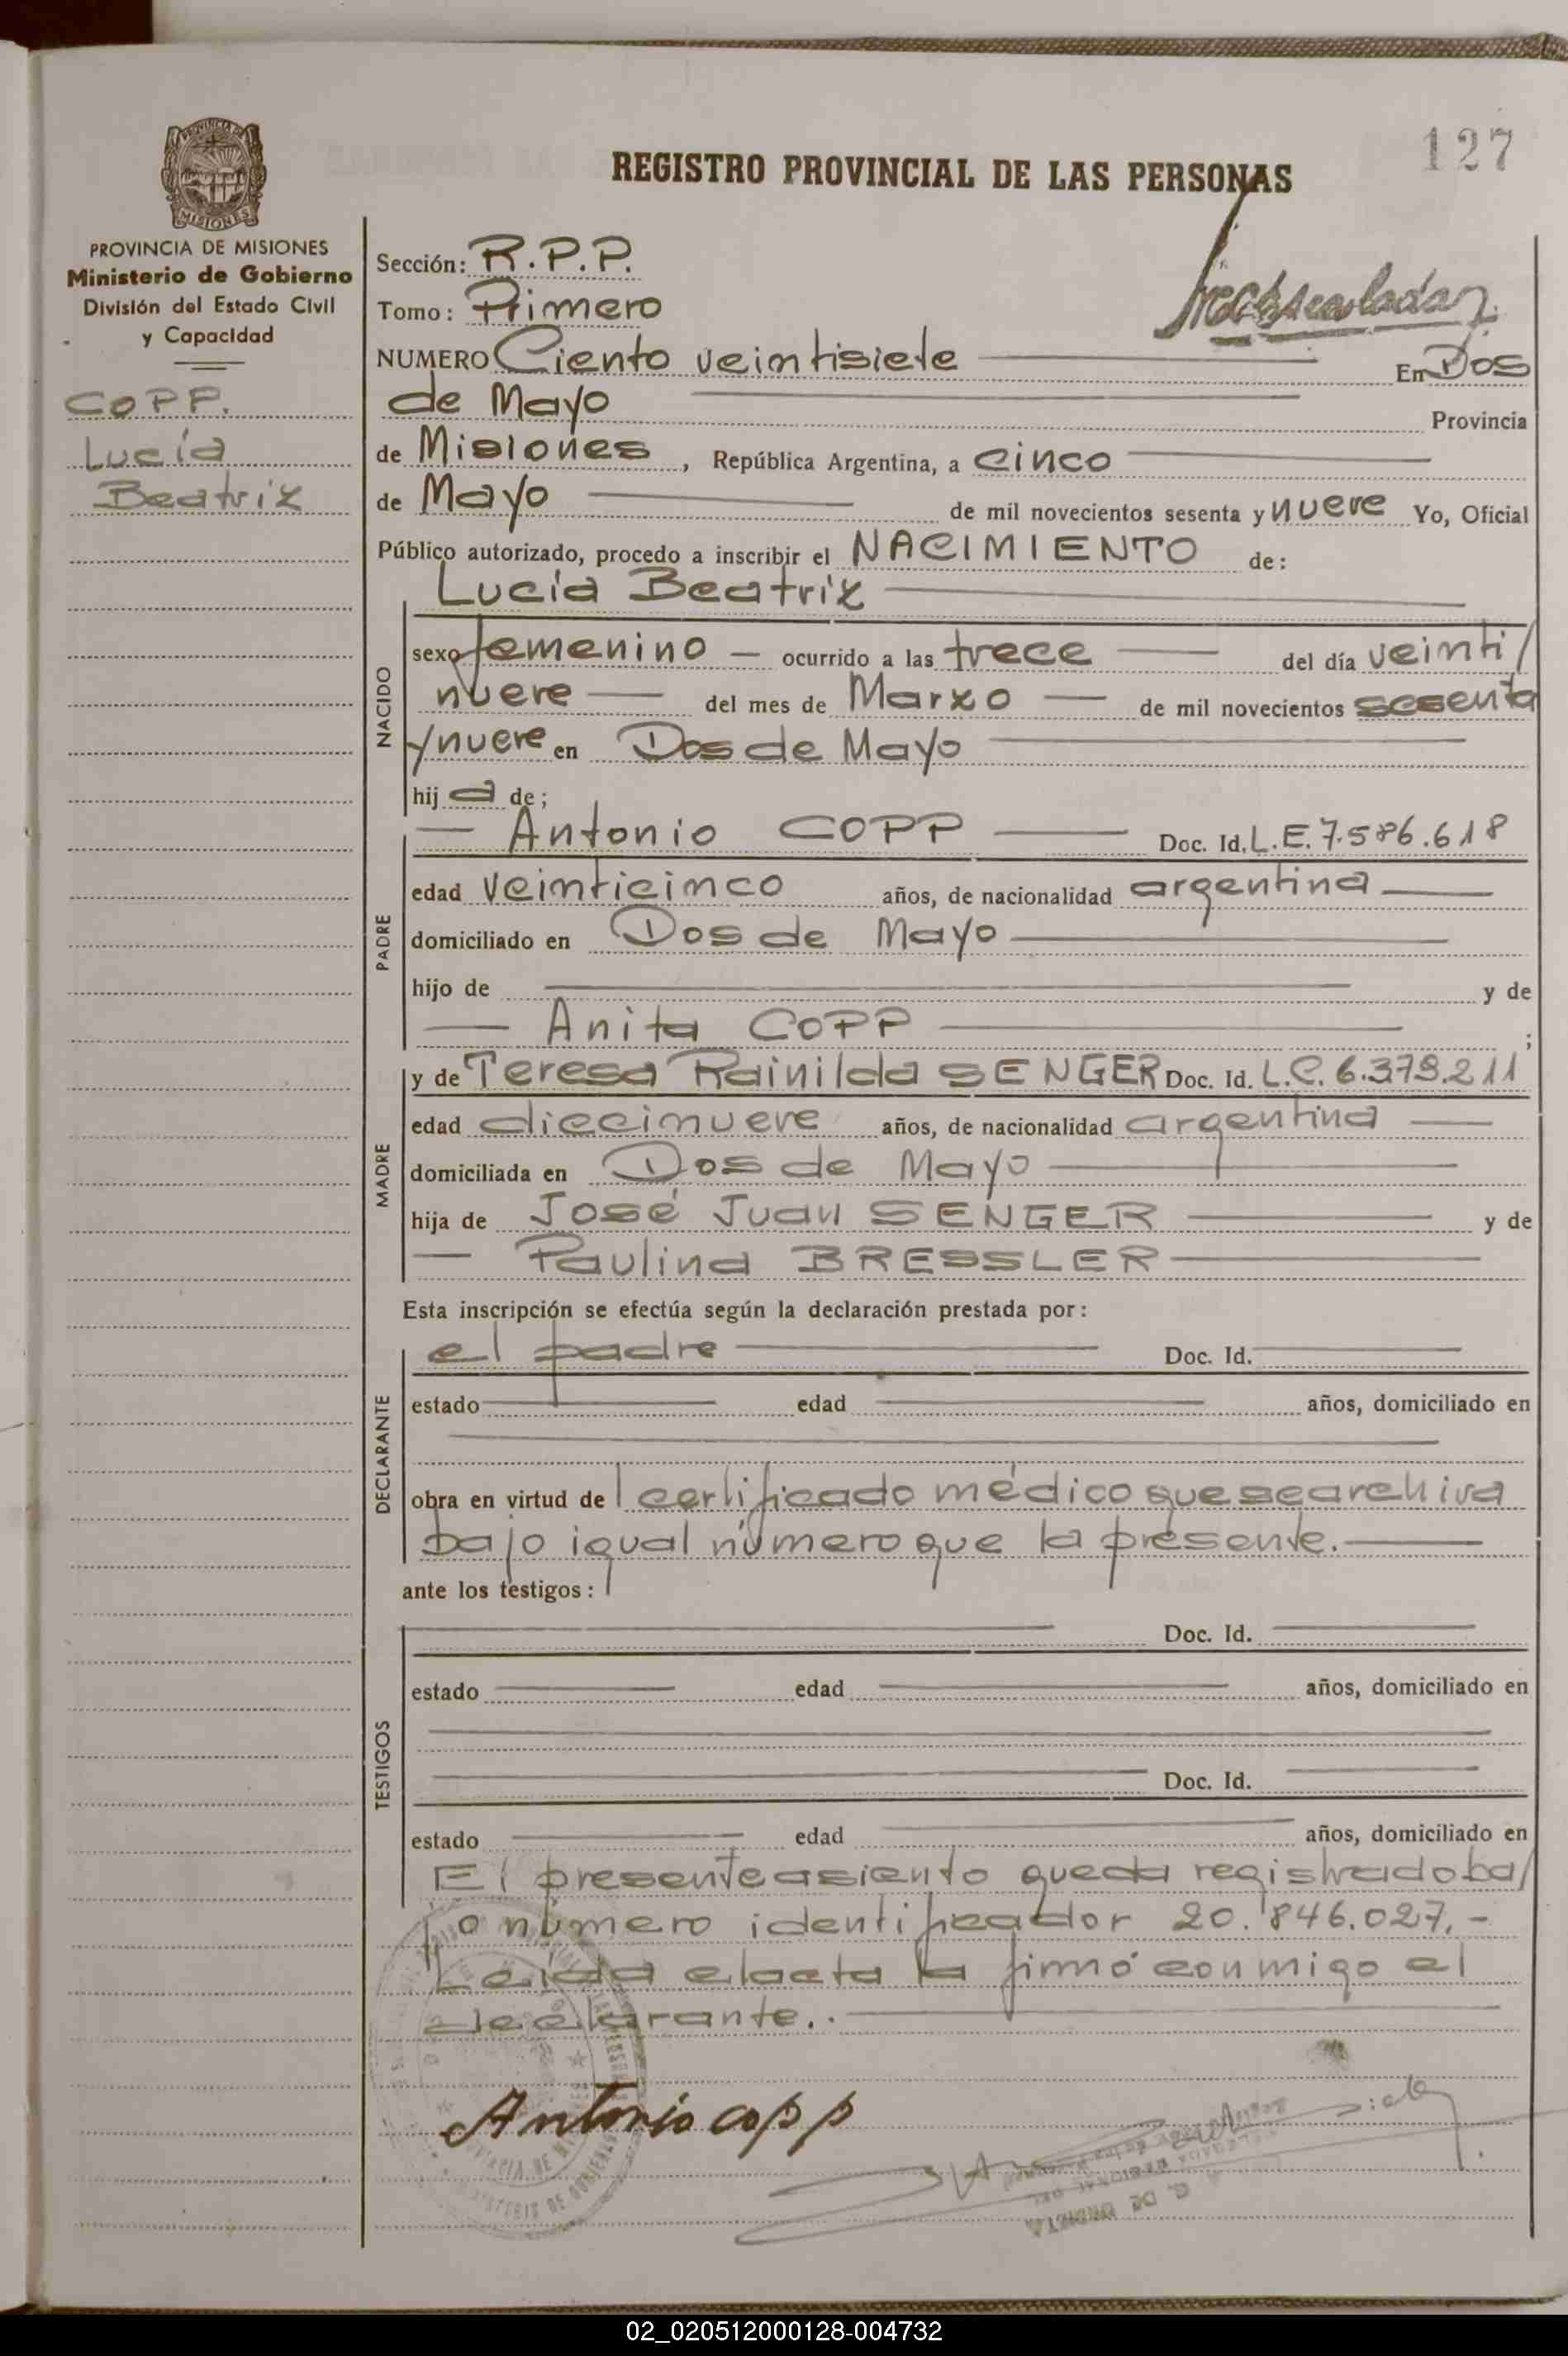 127
REGISTRO PROVINCIAL DE LAS PERSONAS
PROVINCIA DE MISIONES
Ministerio de Gobierno
División del Estado Civil
y Capacidad
COPP.
Lucía
Beatriz
Sección: R.P.P.
Tomo: Primero
NUMERO Ciento veintisiete En Dos
de Mayo Provincia
de Misiones, República Argentina, a cinco
de Mayo de mil novecientos sesenta y nueve Yo, Oficial
Público autorizado, procedo a inscribir el NACIMIENTO de:
Lucía Beatriz
NACIDO
sexo femenino ocurrido a las trece del día veinti/
nueve del mes de Marzo de mil novecientos sesenta
y nueve en Dos de Mayo
hija de;
PADRE
Antonio COPP Doc. Id. L.E. 7.586.618
edad veinticinco años, de nacionalidad argentina
domiciliado en Dos de Mayo
hijo de y de
Anita COPP ;
MADRE
y de Teresa Rainilda SENGER Doc. Id. L.C. 6.379.211
edad diecinueve años, de nacionalidad argentina
domiciliada en Dos de Mayo
hija de José Juan SENGER y de
Paulina BRESSLER
Esta inscripción se efectúa según la declaración prestada por:
DECLARANTE
el padre Doc. Id.
estado edad años, domiciliado en
obra en virtud de l certificado médico que se archiva
bajo igual número que la presente.
ante los testigos:
TESTIGOS
Doc. Id.
estado edad años, domiciliado en
Doc. Id.
estado edad años, domiciliado en
El presente asiento queda registrado ba/
jo número identificador 20.846.027.-
Leída el acta la firmó conmigo el
declarante..
Antonio copp
02_020512000128-004732